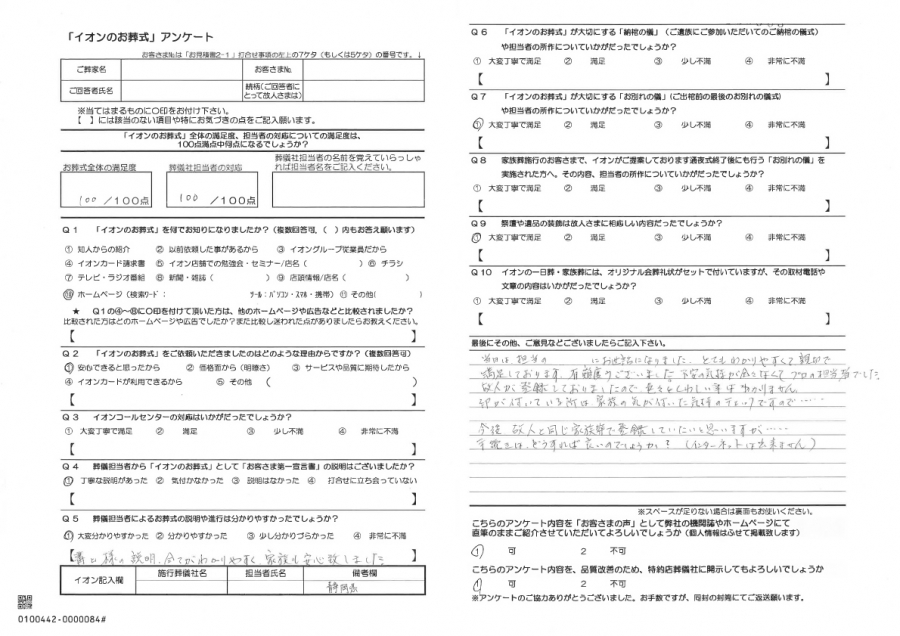 「イオンのお葬式」アンケート
お客さま№は「お見積書2-1」打合せ事項の左上の7ケタ（もしくは5ケタ）の番号です。↓
ご葬家名 お客さま№
ご回答者氏名 続柄（ご回答者にとって故人さまは）
※当てはまるものに○印をお付け下さい。
【　】には該当のない項目や特にお気づきの点をご記入願います。
「イオンのお葬式」全体の満足度、担当者の対応についての満足度は、
100点満点中何点になるでしょうか？
お葬式全体の満足度 葬儀社担当者の対応 葬儀社担当者の名前を覚えていらっしゃれば担当者名をご記入ください。
100 /100点 100 /100点
Q1 「イオンのお葬式」を何でお知りになりましたか？（複数回答可、（　）内もお答え願います）
① 知人からの紹介 ② 以前依頼した事があるから ③ イオングループ従業員だから
④ イオンカード請求書 ⑤ イオン店舗での勉強会・セミナー/店名（　） ⑥ チラシ
⑦ テレビ・ラジオ番組 ⑧ 新聞・雑誌（　） ⑨ 店頭情報/店名（　）
⑩ ホームページ（検索ワード：　ツール：パソコン・スマホ・携帯） ⑪ その他（　）
★ Q1の④～⑧に○印を付けて頂いた方は、他のホームページや広告などと比較されましたか？
比較された方はどのホームページや広告でしたか？また比較し迷われた点がありましたらお教えください。
【　】
Q2 「イオンのお葬式」をご依頼いただきましたのはどのような理由からですか？（複数回答可）
① 安心できると思ったから ② 価格面から（明瞭さ） ③ サービスや品質に期待したから
④ イオンカードが利用できるから ⑤ その他（　）
【　】
Q3 イオンコールセンターの対応はいかがだったでしょうか？
① 大変丁寧で満足 ② 満足 ③ 少し不満 ④ 非常に不満
【　】
Q4 葬儀担当者から「イオンのお葬式」として「お客さま第一宣言書」の説明はございましたか？
① 丁寧な説明があった ② 気付かなかった ③ 説明はなかった ④ 打合せに立ち会っていない
【　】
Q5 葬儀担当者によるお葬式の説明や進行は分かりやすかったでしょうか？
① 大変分かりやすかった ② 分かりやすかった ③ 少し分かりづらかった ④ 非常に不満
様の説明、全てがわかりやすく、家族も安心致しました
イオン記入欄 施行葬儀社名 担当者氏名 備考欄
静岡県
0100442-0000084#
Q6 「イオンのお葬式」が大切にする「納棺の儀」（ご遺族にご参加いただいてのご納棺の儀式）
や担当者の所作についていかがだったでしょうか？
① 大変丁寧で満足 ② 満足 ③ 少し不満 ④ 非常に不満
【　】
Q7 「イオンのお葬式」が大切にする「お別れの儀」（ご出棺前の最後のお別れの儀式）
や担当者の所作についていかがだったでしょうか？
① 大変丁寧で満足 ② 満足 ③ 少し不満 ④ 非常に不満
【　】
Q8 家族葬施行のお客さまで、イオンがご提案しております通夜式終了後にも行う「お別れの儀」を
実施された方へ。その内容、担当者の所作についていかがだったでしょうか？
① 大変丁寧で満足 ② 満足 ③ 少し不満 ④ 非常に不満
【　】
Q9 祭壇や遺品の装飾は故人さまに相応しい内容だったでしょうか？
① 大変丁寧で満足 ② 満足 ③ 少し不満 ④ 非常に不満
【　】
Q10 イオンの一日葬・家族葬には、オリジナル会葬礼状がセットで付いていますが、その取材電話や
文章の内容はいかがだったでしょうか？
① 大変丁寧で満足 ② 満足 ③ 少し不満 ④ 非常に不満
【　】
最後にその他、ご意見などございましたらご記入下さい。
当日は担当の　にお世話になりました、とてもわかりやすくて親切で
満足しております、有難度うございました
故人が登録しておりましたので、色々とくわしい事はわかりません。
印が付いている所は家族の気が付いた気持のチェックですので……
今後 故人と同じ家族葬で登録していたいと思いますが……
手続きは、どうすれば良いのでしょうか？（インターネットは出来ません）
※スペースが足りない場合は裏面もお使いください。
こちらのアンケート内容を「お客さまの声」として弊社の機関誌やホームページにて
直筆のままご紹介させていただいてよろしいでしょうか（個人情報はふせて掲載致します）
1 可 2 不可
こちらのアンケート内容を、品質改善のため、特約店葬儀社に開示してもよろしいでしょうか
1 可 2 不可
※アンケートのご協力ありがとうございました。お手数ですが、同封の封筒にてご返送願います。